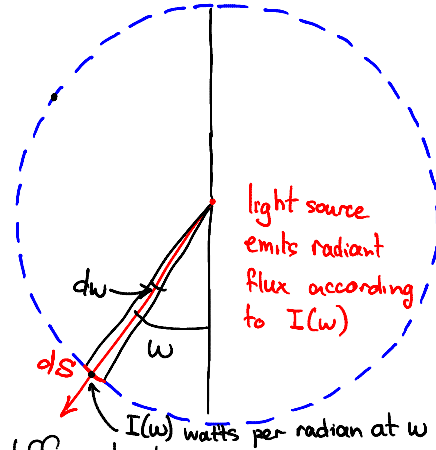 light source
emits radiant
flux according
to I(w)
dw
w
dS
I(w) watts per radian at w